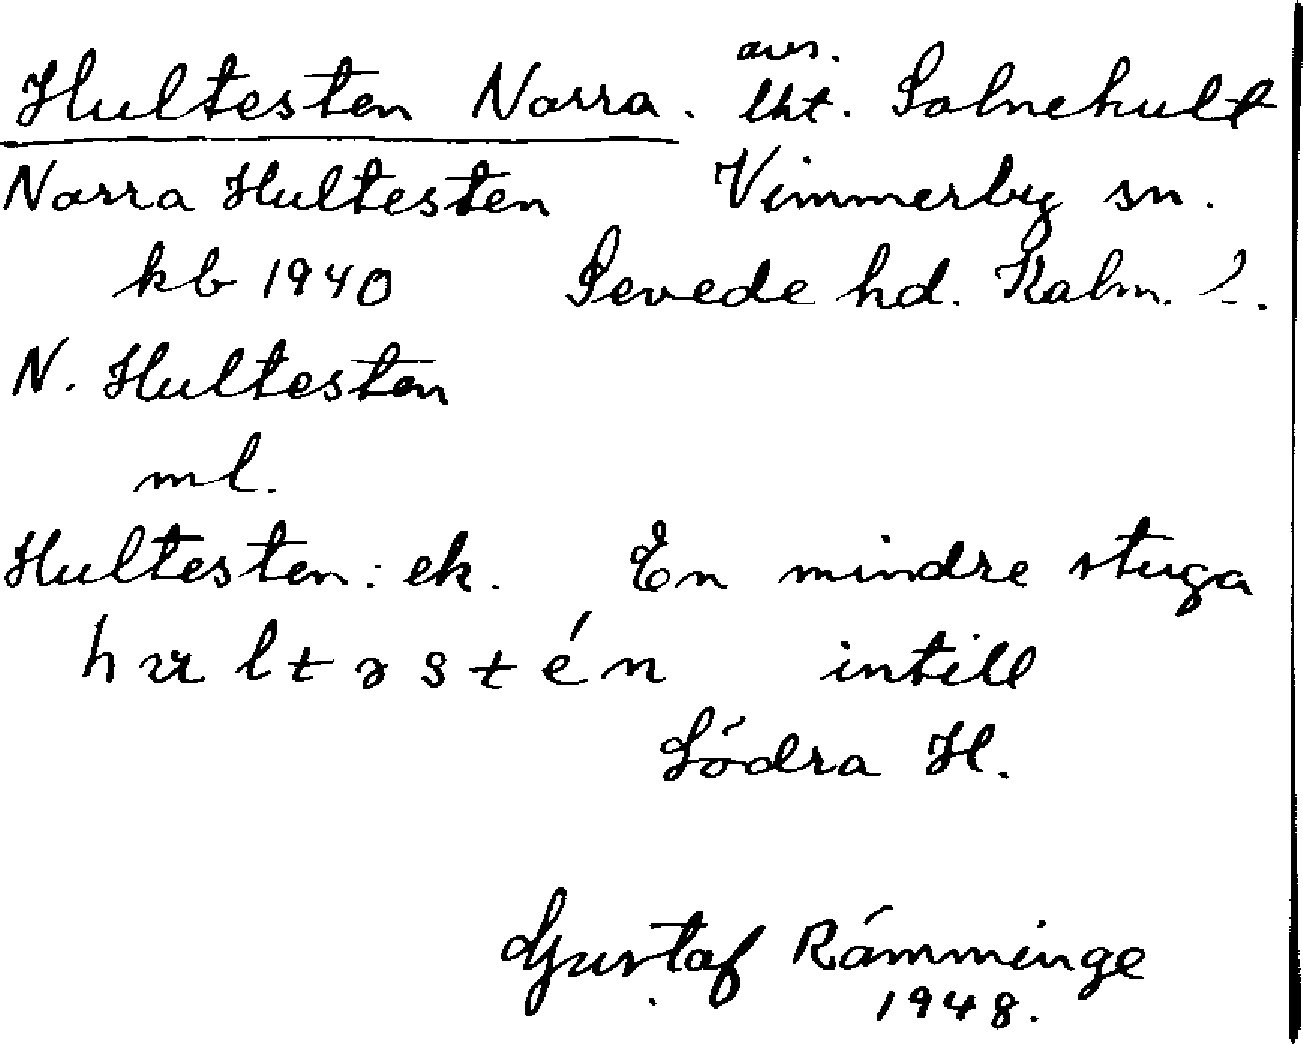 avs.
Hultesten Norra. lht. Solnehult
Norra Hultesten Vimmerby sn.
kb 1940 Sevede hd. Kalm. l.
N. Hultesten
ml.
Hultesten: ek. En mindre stuga
hultəstén intill
Södra H.
Gustaf Rämminge
1948.